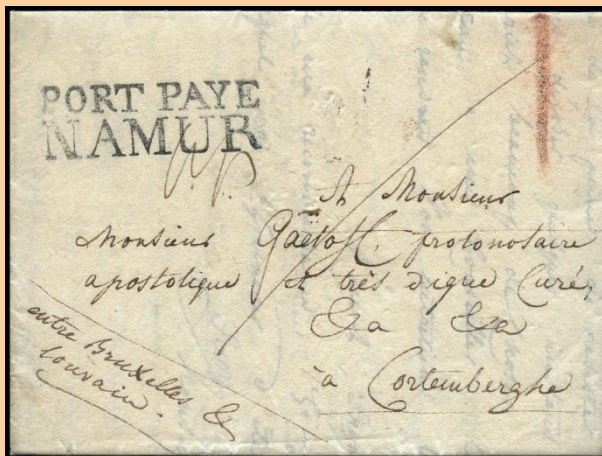 PORT PAYE
NAMUR
A Monsieur
Monsieur protonotaire
apostolique et très digne Curé,
&a &a
à Cortemberghe
entre Bruxelles &
louvain.